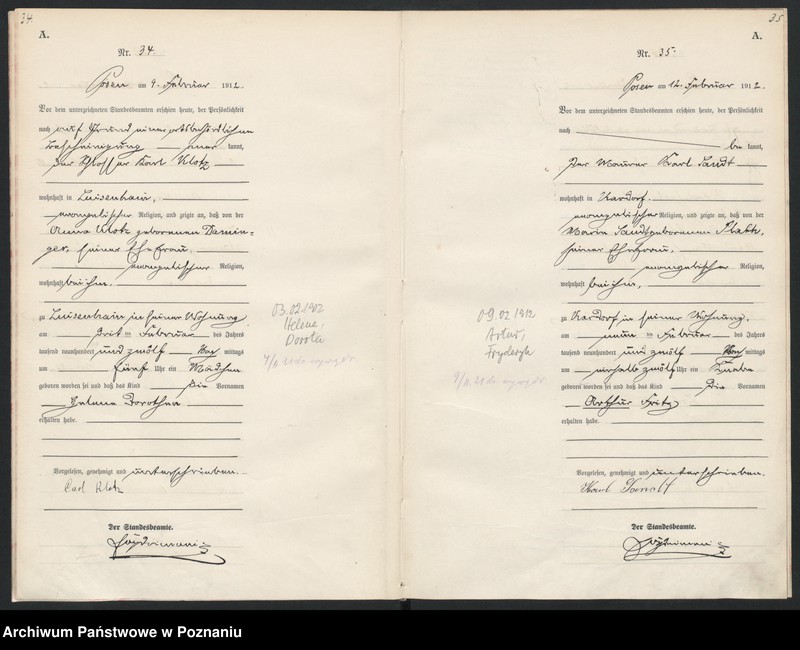 34.
A.
Nr. 34.
Posen am 9. Februar 1912.
Vor dem unterzeichneten Standesbeamten erschien heute, der Persönlichkeit
nach auf Grund einer ortsbehördlichen
Bescheinigung — aner kannt,
der Schlosser Karl Klotz
wohnhaft in Luisenhain,
evangelischer Religion, und zeigte an, daß von der
Anna Klotz geborenen
seiner Ehefrau,
evangelischer Religion,
wohnhaft bei ihm,
zu Luisenhain in seiner Wohnung
am drei ten Februar des Jahres
tausend neunhundert und zwölf Vor mittags
um fünf Uhr ein Mädchen
geboren worden sei und daß das Kind die Vornamen
Helene Dorothea
erhalten habe.
Vorgelesen, genehmigt und unterschrieben.
Carl Klotz
Der Standesbeamte.
03.02.1902
Helena,
Dorota
35.
A.
Nr. 35.
Posen am 12. Februar 1912.
Vor dem unterzeichneten Standesbeamten erschien heute, der Persönlichkeit
nach be kannt,
der Maurer Karl Sandt
wohnhaft in
evangelischer Religion, und zeigte an, daß von der
Maria Sandt geborenen
seiner Ehefrau,
evangelischer Religion,
wohnhaft bei ihm,
zu in seiner Wohnung,
am neun ten Februar des Jahres
tausend neunhundert und zwölf Vor mittags
um zwölf Uhr ein Knabe
geboren worden sei und daß das Kind die Vornamen
Arthur Fritz
erhalten habe.
Vorgelesen, genehmigt und unterschrieben.
Karl Sandt
Der Standesbeamte.
09.02.1912
Artur,
Fryderyk
Archiwum Państwowe w Poznaniu